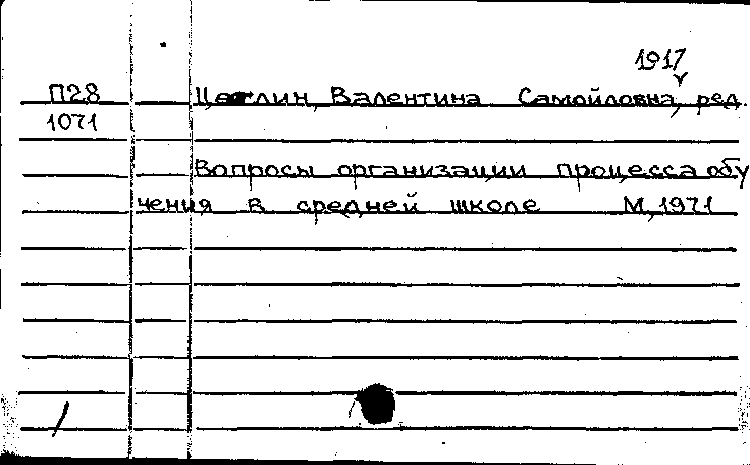 1917
П28 Цетлин, Валентина Самойловна, ред.
1071
Вопросы организации процесса обу
чения в средней школе М, 1971